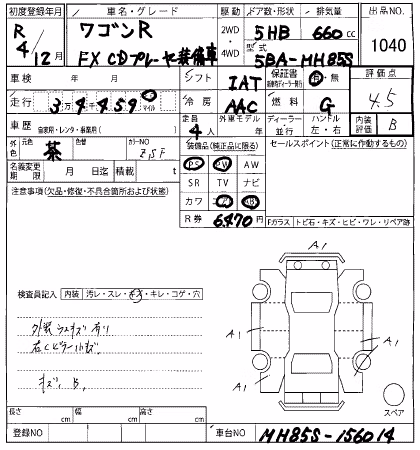 初度登録年月 車名・グレード 駆動 ドア数・形状 排気量 出品NO.
R 4/12月 ワゴンR 2WD 5HB 660cc 1040
FX CDプレーヤ装備車 4WD 型式 5BA-MH85S
車検 年 月 シフト IAT 保証書 有・無 評価点
走行 3万4459 マイル 冷房 AAC 燃料 G 4.5
車歴 自家用・レンタ・事業用( ) 定員 4人 外車モデル 年 ディーラー・並行 ハンドル 左・右 内装評価 B
外色 元色 茶 色替 カラーNO ZSF 装備品(純正品に限る) セールスポイント(正常に作動するもの)
名義変更期限 月 日迄 積載 t PS PW AW
注意事項(欠品・修復・不具合箇所および状態) SR TV ナビ
カワ
R券 6470円 Fガラス トビ石・キズ・ヒビ・ワレ・リペア跡
A1
検査員記入 内装 汚レ・スレ・キズ・キレ・コゲ・穴
A1 A1
外装うすキズ有り
右Cピラー小キズ
キズ、B、
A1 スペア
長さ cm 幅 cm 高さ cm
登録NO 車台NO MH85S-156014